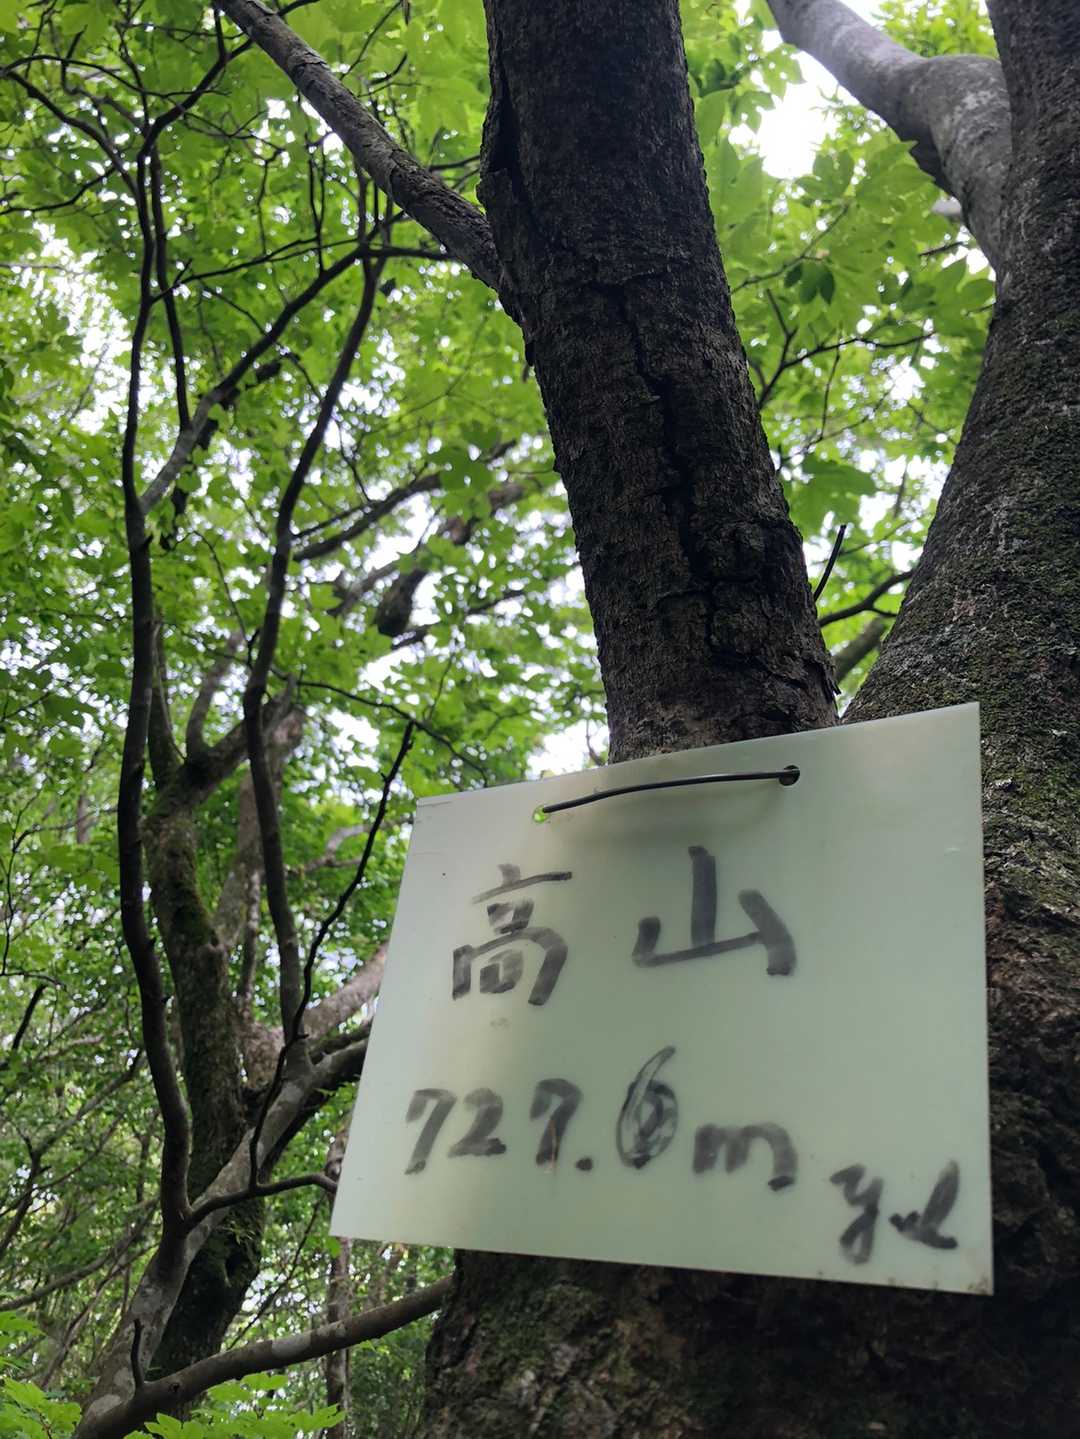 高山
727.6m